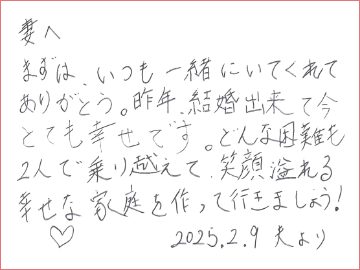 妻へ
まずは、いつも一緒にいてくれて
ありがとう。昨年、結婚出来て今
とても幸せです。どんな困難も
2人で乗り越えて、笑顔溢れる
幸せな家庭を作って行きましょう!
♡ 2025.2.9 夫より